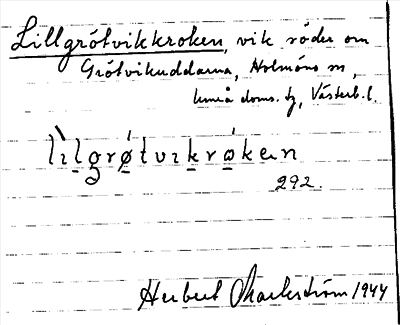 Lillgrötvikkroken, vik söder om
Grötvikuddarna, Holmöns sn,
Umeå doms. tg, Västerb. l.
lìlgrǿtvıkróken
292.
Herbert Markström 1944